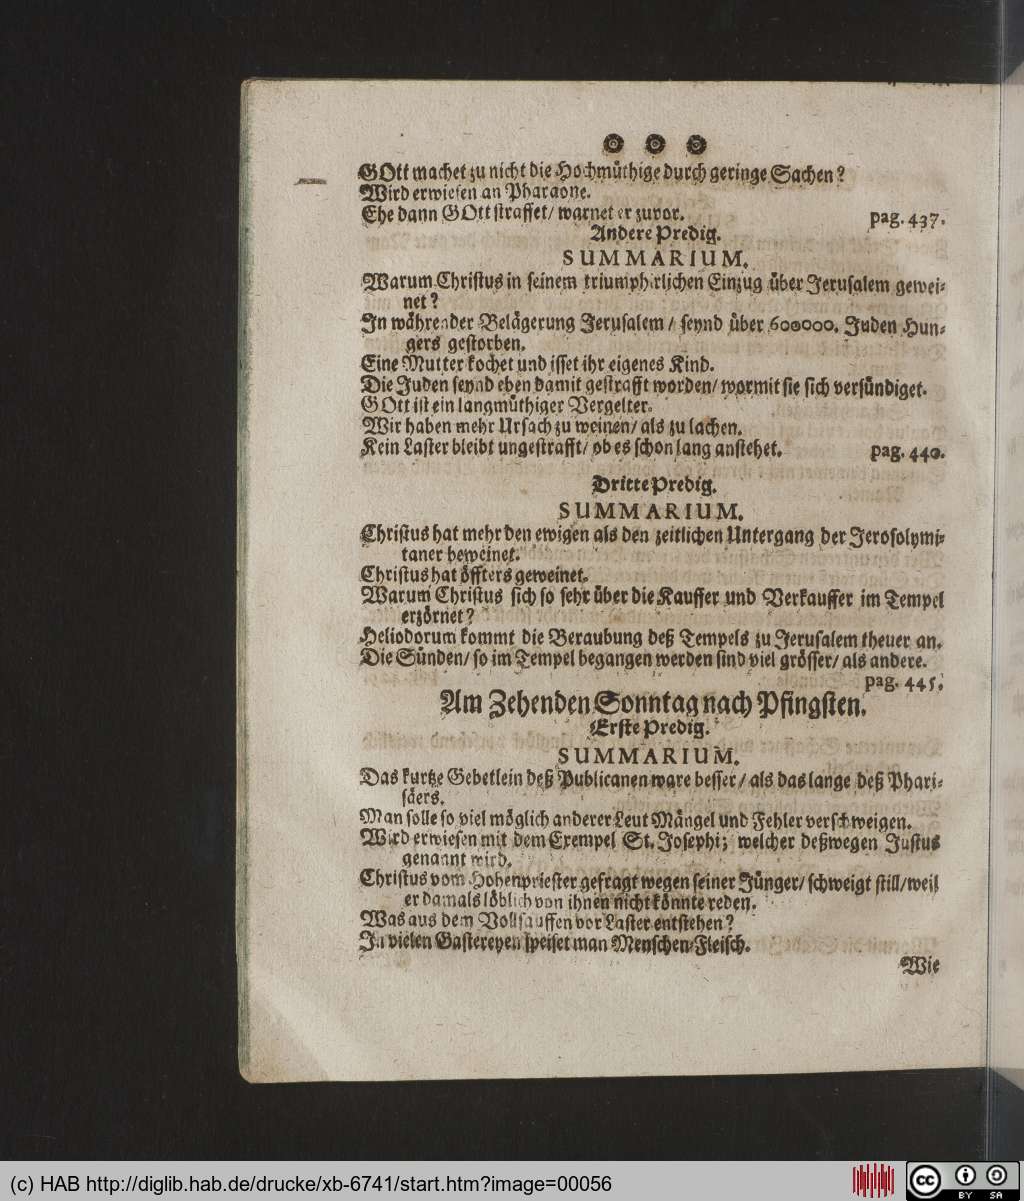 GOtt machet zu nicht die Hochmüthige durch geringe Sachen?
Wird erwiesen an Pharaone.
Ehe dann GOtt straffet/ warnet er zuvor. pag. 437.
Andere Predig.
SUMMARIUM.
Warum Christus in seinem triumphirlichen Einzug über Jerusalem gewei-
net?
In währender Belägerung Jerusalem / seynd über 600000. Juden Hun-
gers gestorben.
Eine Mutter kochet und isset ihr eigenes Kind.
Die Juden seynd eben damit gestrafft worden/ wormit sie sich versündiget.
GOtt ist ein langmüthiger Vergelter.
Wir haben mehr Ursach zu weinen/ als zu lachen.
Kein Laster bleibt ungestrafft/ ob es schon lang anstehet. pag. 440.
Dritte Predig.
SUMMARIUM.
Christus hat mehr den ewigen als den zeitlichen Untergang der Jerosolymi-
taner beweinet.
Christus hat öffters geweinet.
Warum Christus sich so sehr über die Kauffer und Verkauffer im Tempel
erzörnet?
Heliodorum kommt die Beraubung deß Tempels zu Jerusalem theuer an.
Die Sünden/ so im Tempel begangen werden sind viel grösser/ als andere.
pag. 445.
Am Zehenden Sonntag nach Pfingsten.
Erste Predig.
SUMMARIUM.
Das kurtze Gebetlein deß Publicanen ware besser/ als das lange deß Phari-
säers.
Man solle so viel möglich anderer Leut Mängel und Fehler verschweigen.
Wird erwiesen mit dem Exempel St. Josephi; welcher deßwegen Justus
genannt wird.
Christus vom Hohenpriester gefragt wegen seiner Jünger/ schweigt still/weil
er damals löblich von ihnen nicht könnte reden.
Was aus dem Vollsauffen vor Laster entstehen?
In vielen Gastereyen speiset man Menschen-Fleisch.
Wie
(c) HAB http://diglib.hab.de/drucke/xb-6741/start.htm?image=00056
cc BY SA